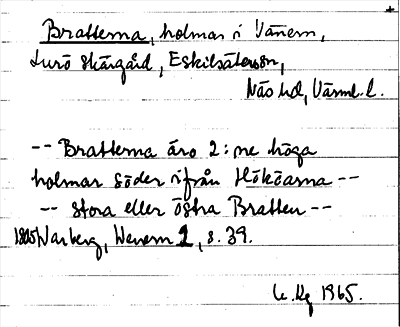 Bratterna, holmar i Vänern,
Lurö skärgård, Eskilsäters sn,
Näs hd, Värml. l.
-- Bratterna äro 2: ne höga
holmar söder ifrån Hököarna --
-- Stora eller östra Bratten --
1805 Warberg, Wenern 1, s. 39.
1965.